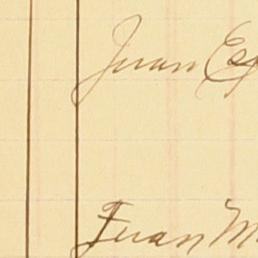 Juan Es
Juan M